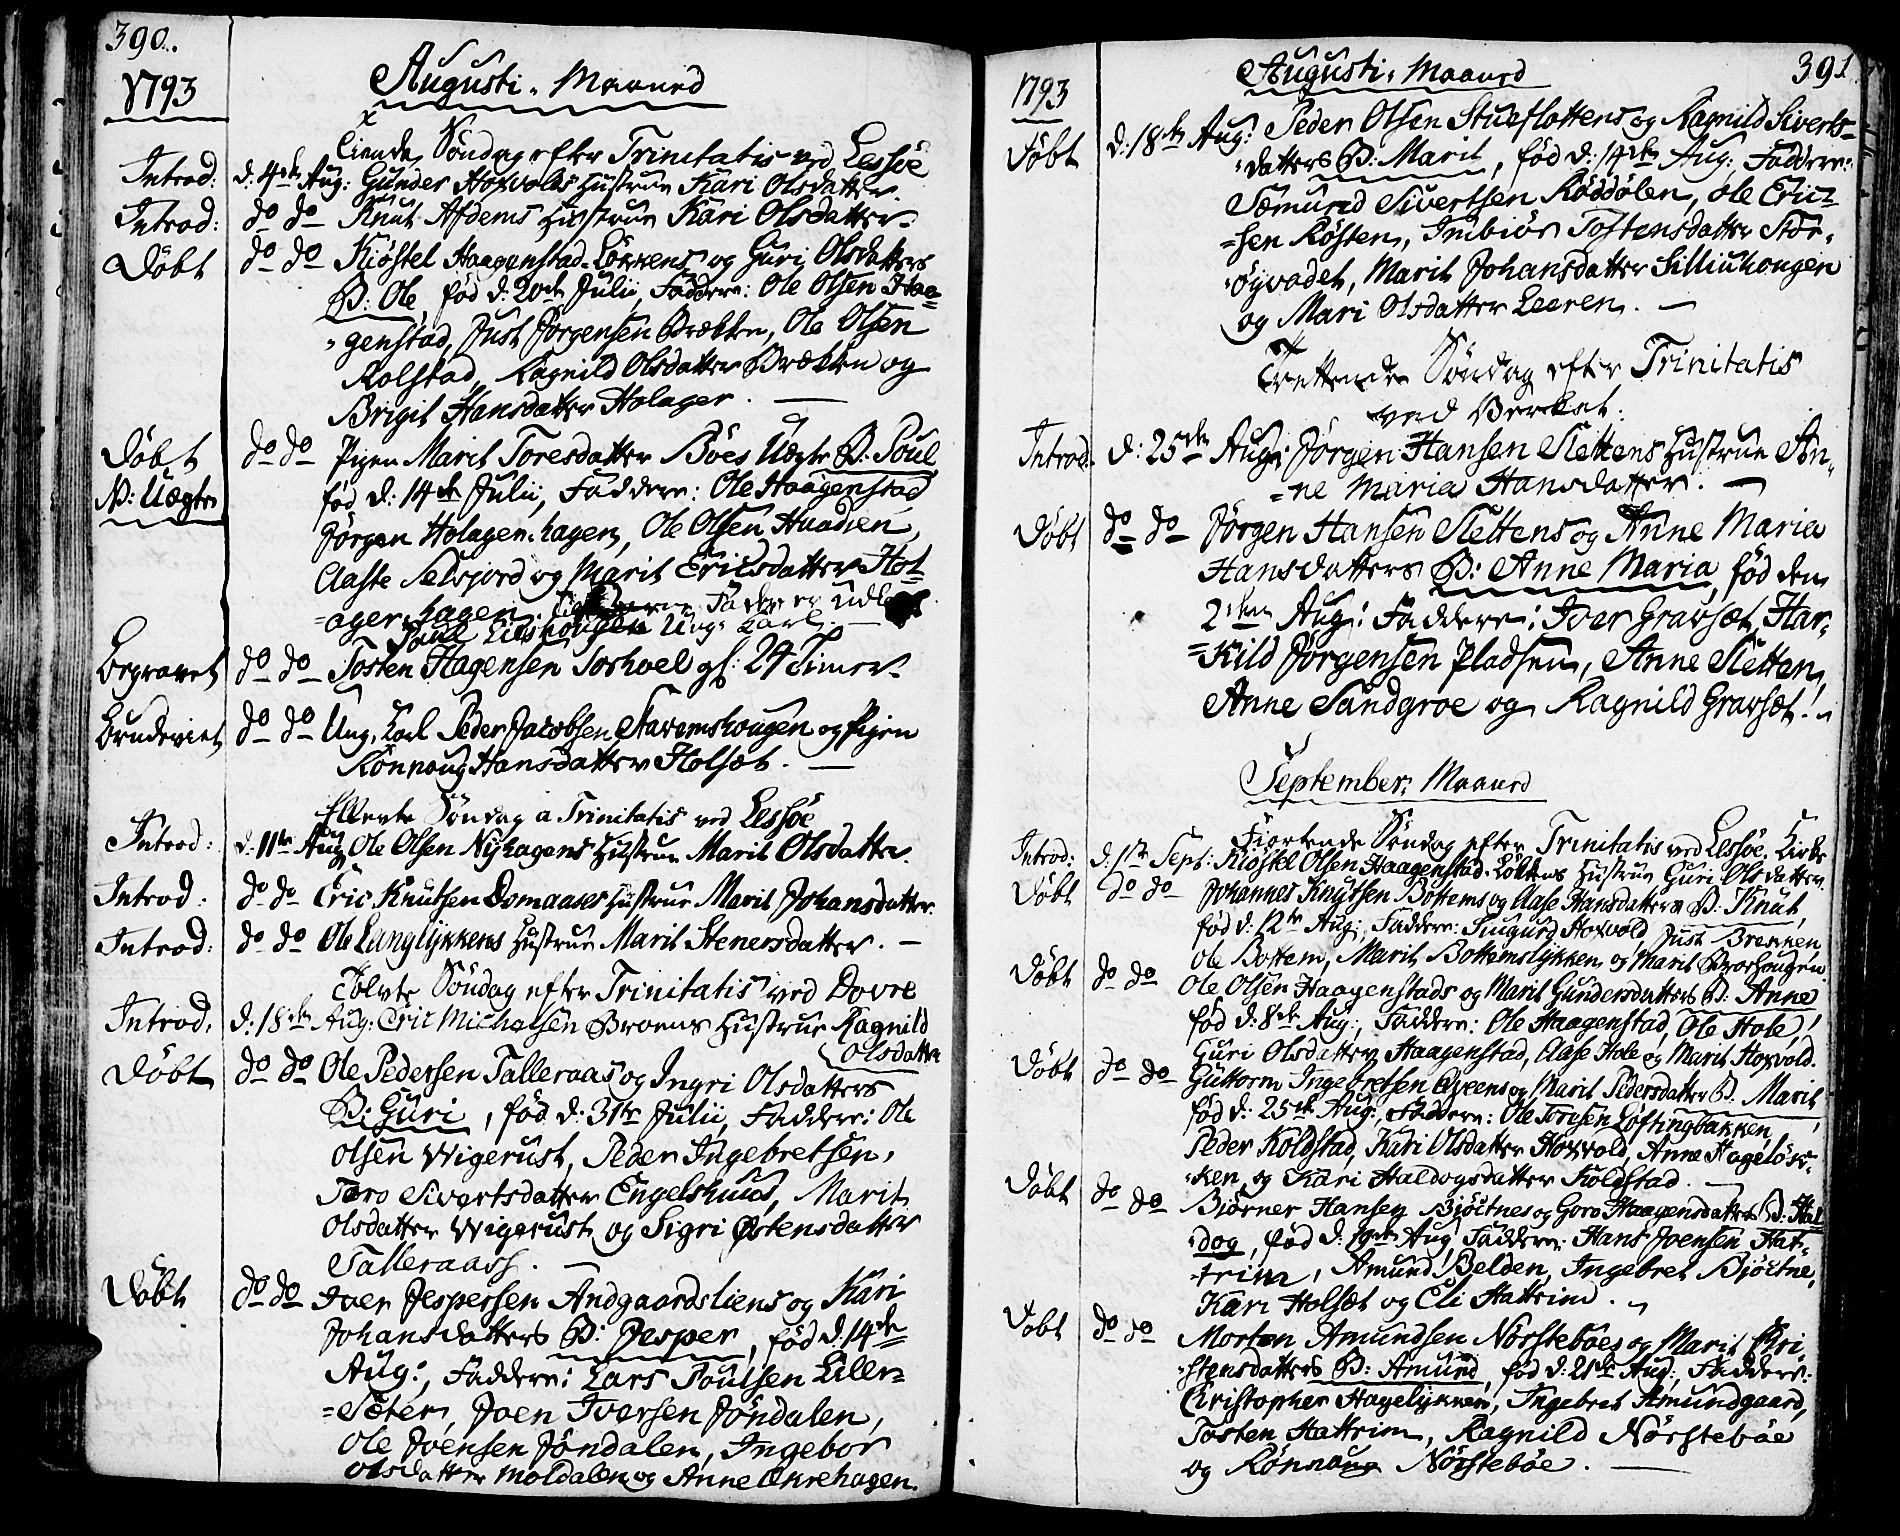 390.
1793
Augusti. Maaned
x
Tiende Søndag efter Trinitatis ved Lessøe
Introd: d: 4de Aug: Gunder Hoxvolds Hustrue Kari Olsdatter.
Introd: do do Knut Afdems Hustrue Kari Olsdatter.
Døbt do do Kiøstel Haagenstad-Løkkens og Guri Olsdatters
B: Ole, fød d: 20de Julii, Faddere: Ole Olsen Haa-
genstad, Just Jørgensen Brækken, Ole Olsen
Kolstad, Ragnild Olsdatter Brækken og
Brigit Hansdatter Holager. —
Døbt do do Pigen Marit Toresdatter Böes Uægte B: Poul
N: Uægte fød d: 14de Julii, Faddere: Ole Haagenstad
Jørgen Holagen-hagen, Ole Olsen Haadien,
Claste Selsjord og Marit Ericsdatter Hol-
ager-hagen. Fader er udlagt
Poul Lieshougen Ung-Karl. —
Begravet do do Tosten Hagensen Toshoel gl: 24 Timer.
Brudeviet do do Ung-Karl Peder Jacobsen Stavemshougen og Pigen
Rønnaug Hansdatter Holsæt. —
Ellevte Søndag a Trinitatis ved Lessøe
Introd: d: 11te Aug Ole Olsen Nyhagens Hustrue Marit Olsdatter.
Introd: do do Eric Knutsen Domaases Hustrue Marit Johansdatter.
Introd: do do Ole Langlykkens Hustrue Marit Stenersdatter. —
Tolvte Søndag efter Trinitatis ved Dovre
Introd. d: 18de Aug: Eric Michelsen Broens Hustrue Ragnild
Olsdatter
Døbt do do Ole Pedersen Talleraas og Ingri Olsdatters
B: Guri, fød d: 31te Julii, Faddere: Ole
Olsen Wigerust, Peder Ingebretsen,
Taro Sivertsdatter Engelshuus, Marit
Olsdatter Wigerust og Sigri Østensdatter
Talleraass. —
Døbt do do Iver Jespersen Andgaardsliens og Kari
Johansdatters B: Jesper, fød d: 14de
Aug:, Faddere: Lars Poulsen Liler-
Sæter, Joen Iversen Jøndalen,
Ole Joensen Jøndalen, Ingebor
Olsdatter Moldalen og Anne Enrehagen.
391
1793
Augusti. Maaned
Døbt d: 18de Aug: Peder Olsen Stueflottens og Ragnild Siverts-
datters B: Marit, fød d: 14de Aug: Faddere:
Sæmund Sivertsen Røddølen, Ole Eric-
sen Røsten, Imbiør Tostensdatter Stor-
øyvadet, Marit Johansdatter Silliuhougen
og Mari Olsdatter Leeren. —
Trettende Søndag efter Trinitatis
ved Verket.
Introd. d: 25de Aug: Jørgen Hansen Slettens Hustrue An-
ne Maria Hansdatter. —
Døbt do do Jørgen Hansen Slettens og Anne Maria
Hansdatters B: Anne Maria, fød den
2den Aug: Faddere: Iver Gravsæt, Har-
Kild Jørgensen Pladsen, Anne Sletten,
Anne Sandgroe og Ragnild Gravsæt.
September. Maaned
Fiortende Søndag efter Trinitatis ved Lessøe. Kirke
Introd: d: 1te Sept: Kiøstel Olsen Haagenstad-Løkkens Hustrue Guri Olsdatter.
Døbt do do Johannes Knutsen Bottems og Aase Hansdatters B: Knut,
fød d: 12te Aug:, Faddere: Siugurd Hoxvold, Just Brekken
Ole Bottem, Marit Bottemslykken og Marit Broehougen
Døbt do do Ole Olsen Haagenstads og Marit Gundersdatters B: Anne
fød d: 8de Aug:, Faddere: Ole Haagenstad, Ole Hole,
Guri Olsdatter Haagenstad, Aase Hole og Marit Hoxvold.
Døbt do do Guttorm Ingebretsen Qveens og Marit Pedersdatters B. Marit,
fød d: 25de Aug:, Faddere: Ole Toresen Løftingbakken,
Peder Koldstad, Kari Olsdatter Hoxvold, Anne Hageløk-
ken, og Kari Haldogsdatter Koldstad. —
Døbt do do Biørner Hansen Bjöctnes og Goro Haagensdatters B: Hal-
dog, fød d: 19de Aug Faddere: Hans Joensen Hat-
trim, Amund Belden, Ingebret Bjöctne,
Kari Holsæt og Eli Hattrim.
Døbt do do Morten Amundsen Nørstebøes og Marit Chri-
stensdatters B: Amund, fød d: 21de Aug:, Faddere:
Christopher Hagelykken, Ingebret Amundgaard,
Tosten Hattrim, Ragnild Nørstebøe
og Rønnaug Nørstebøe. —